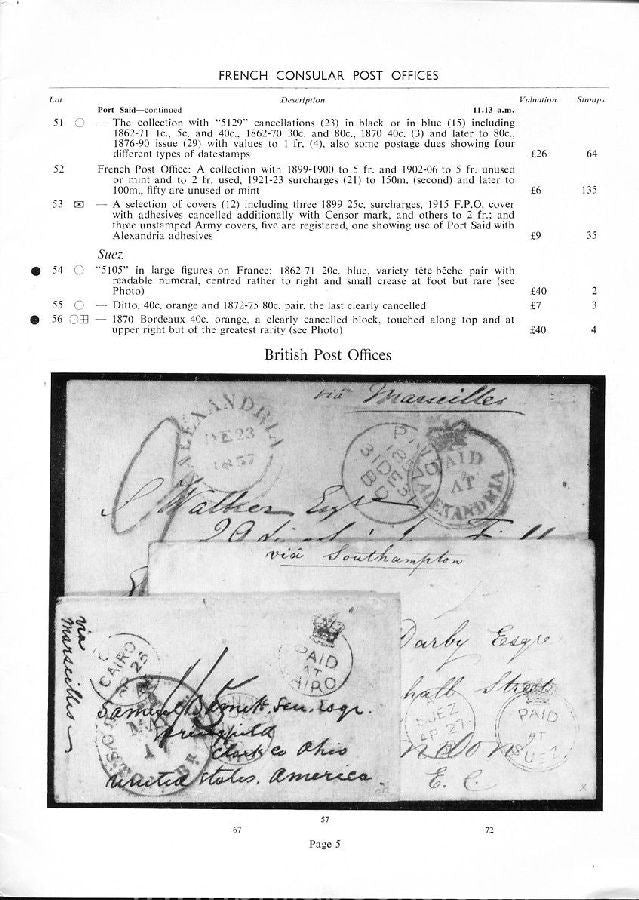 FRENCH CONSULAR POST OFFICES
Lot Description Valuation Stamps
Port Said—continued 11.13 a.m.
51 — The collection with "5129" cancellations (23) in black or in blue (15) including
1862-71 1c., 5c. and 40c., 1862-70 30c. and 80c., 1870 40c. (3) and later to 80c.,
1876-90 issue (29) with values to 1 fr. (4), also some postage dues showing four
different types of datestamps £26 64
52 French Post Office: A collection with 1899-1900 to 5 fr. and 1902-06 to 5 fr. unused
or mint and to 2 fr. used, 1921-23 surcharges (21) to 150m. (second) and later to
100m., fifty are unused or mint £6 135
53 — A selection of covers (12) including three 1899 25c. surcharges, 1915 F.P.O. cover
with adhesives cancelled additionally with Censor mark, and others to 2 fr.; and
three unstamped Army covers, five are registered, one showing use of Port Said with
Alexandria adhesives £9 35
Suez
54 "5105" in large figures on France: 1862-71 20c. blue, variety tête-bêche pair with
readable numeral, centred rather to right and small crease at foot but rare (see
Photo) £40 2
55 — Ditto, 40c. orange and 1872-75 80c. pair, the last clearly cancelled £7 3
56 — 1870 Bordeaux 40c. orange, a clearly cancelled block, touched along top and at
upper right but of the greatest rarity (see Photo) £40 4
British Post Offices
via Marseilles
ALEXANDRIA
DE 23
1857
PAID
PAID
AT
ALEXANDRIA
Walker Esqr
via Southampton
Darby Esqre
hall Street
London
E. C.
SUEZ
AP 27
PAID
AT
SUEZ
via
Marseilles
CAIRO
PAID
AT
CAIRO
Samuel Barnitt. Sen. Esqr.
Springfield
Clark Co Ohio
United States. America.
57
67 72
Page 5